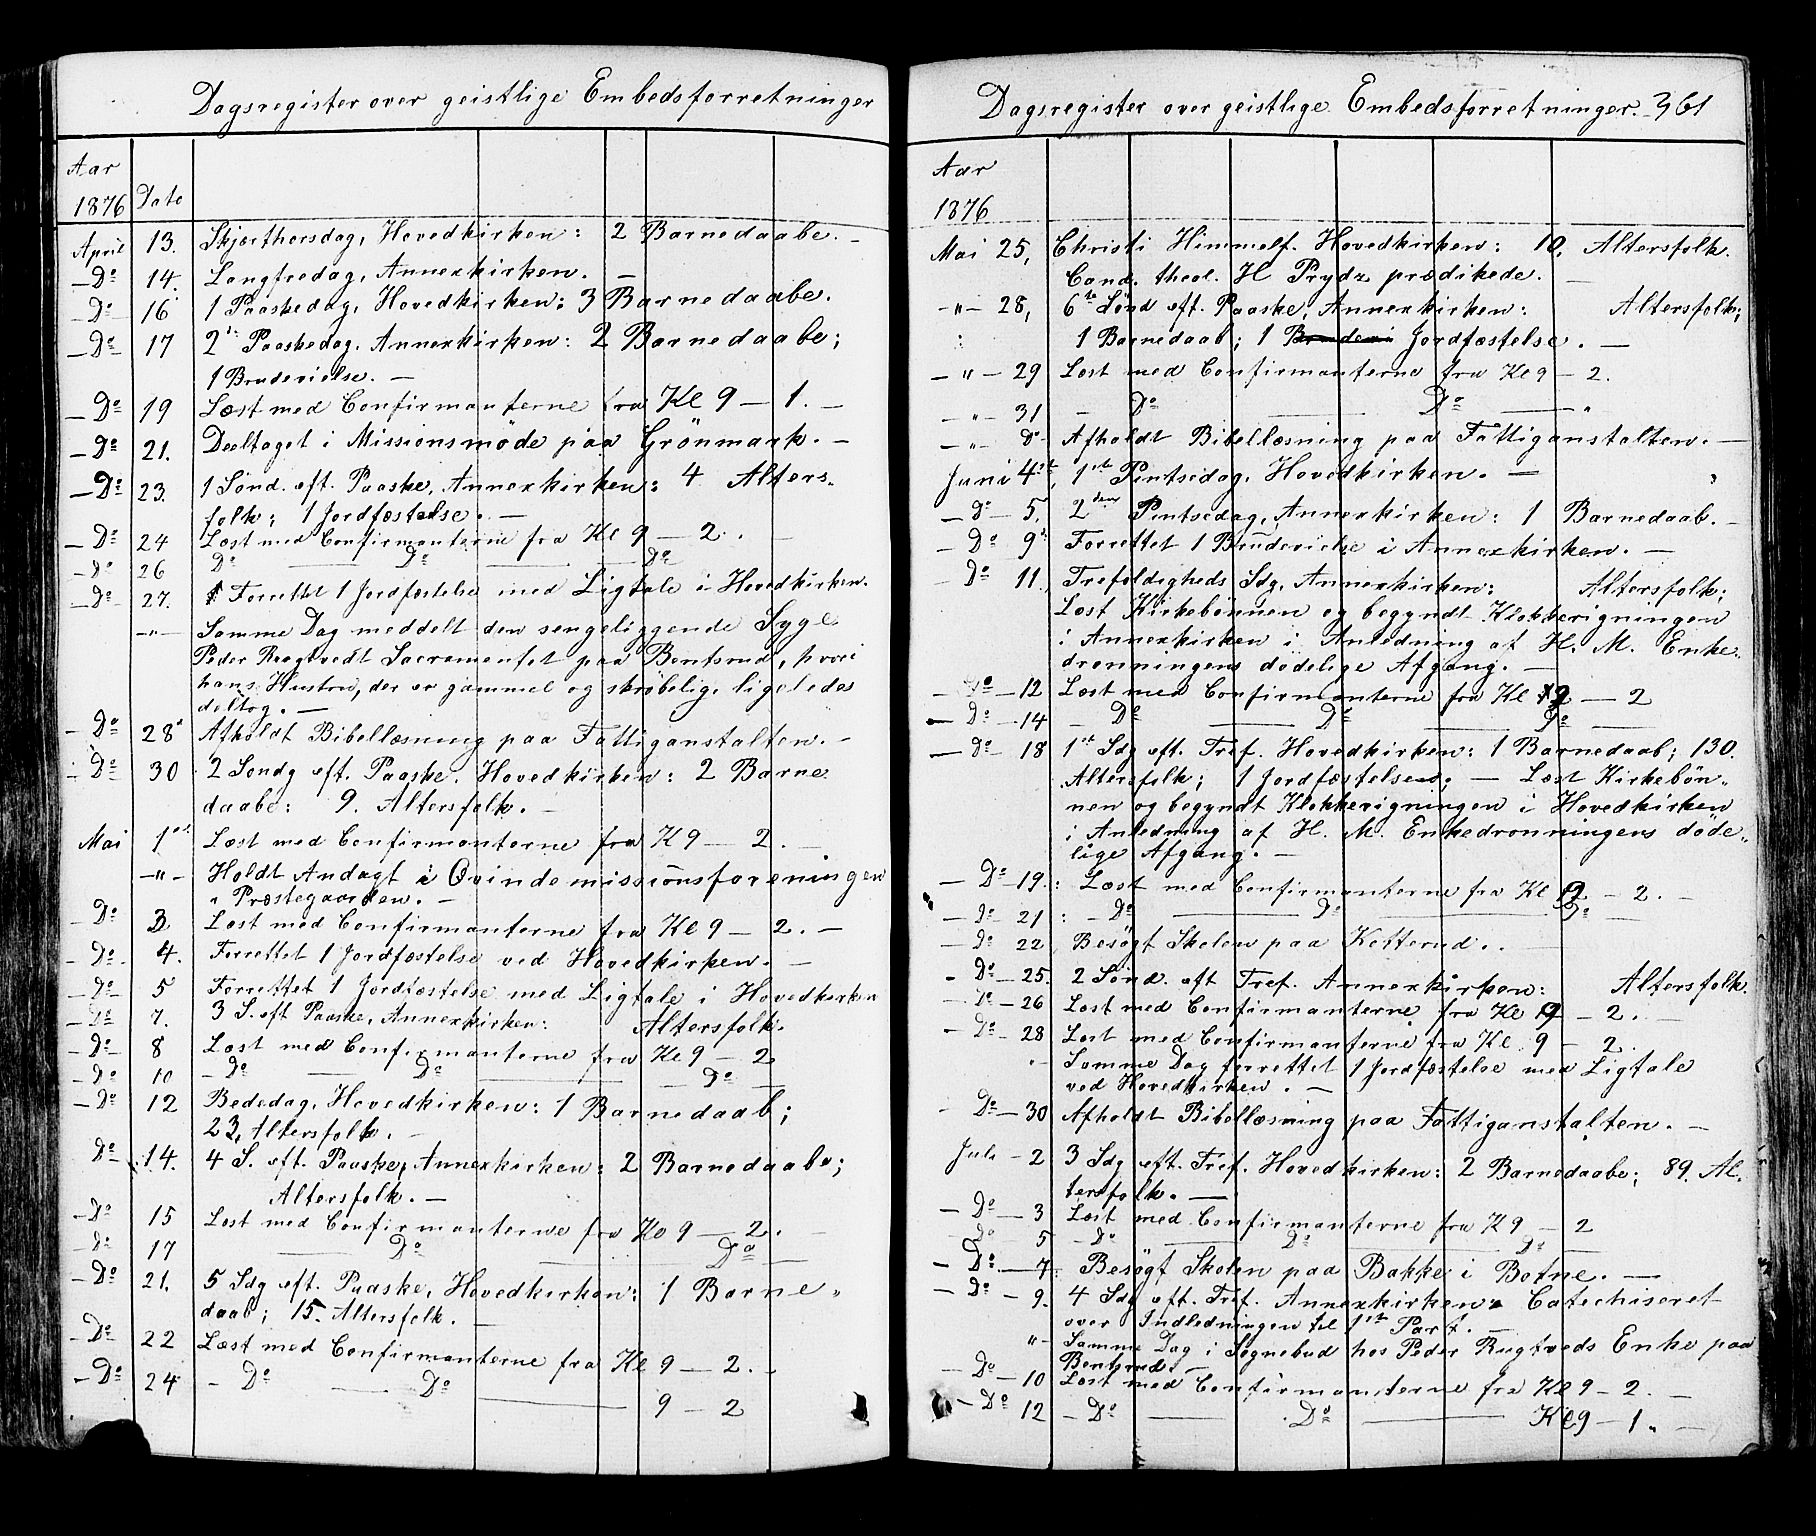 Dagsregister over geistlige Embedsforretninger
Aar
1876 Dato
April 13. Skjærthorsdag, Hovedkirken: 2 Barnedaabe. –
– Do 14. Langfredag, Annexkirken. –
– Do 16 1 Paaskedag, Hovedkirken: 3 Barnedaabe.
– Do 17 2n Paaskedag. Annexkirken: 2 Barnedaabe;
1 Brudevielse. –
– Do 19 Læst med Confirmanterne fra Kl 9 – 1. –
– Do 21. Deeltaget i Missionsmöde paa Grönmark. –
– Do 23. 1 Sönd. eft. Paaske, Annexkirken: 4 Alters-
folk; 1 Jordfæstelse. –
– Do 24 Læst med Confirmanterne fra Kl 9 – 2. –
– Do 26 Do – Do – Do
– Do – 27. Forrettet 1 Jordfæstelse med Ligtale i Hovedkirken.
– " – Samme Dag meddelt den sengeliggende Syge
Peder Rugtvedt Sacramentet paa Bentsrud, hvori
hans Hustru, der er gammel og skröbelig, ligeledes
deltog. –
– Do 28 Afholdt Bibellæsning paa Fattiganstalten. –
– Do 30 2 Söndg eft. Paaske. Hovedkirken: 2 Barne
daabe: 9. Altersfolk. –
Mai 1st Læst med Confirmanterne fra Kl 9 – 2. –
– " – Holdt Andagt i Qvindemissionsforeningen
i Præstegaarden. –
– Do 3 Læst med Confirmanterne fra Kl 9 – 2. –
– Do – 4. Forrettet 1 Jordfæstelse ved Hovedkirken. –
– Do – 5 Forrettet 1 Jordfæstelse med Ligtale i Hovedkirken
– Do – 7. 3 S. eft Paaske, Annexkirken: Altersfolk.
– Do – 8 Læst med Confirmanterne fra Kl 9 – 2
– Do – 10 – Do – Do – Do –
– Do – 12 Bededag, Hovedkirken: 1 Barnedaab;
23, Altersfolk. –
Do – 14. 4 S. eft. Paaske, Annexkirken: 2 Barnedaabe;
Altersfolk. –
– Do 15 Læst med Confirmanterne fra Kl 9 – 2. –
– Do 17 – Do – Do –
– Do 21. 5 Sdg eft. Paaske, Hovedkirken: 1 Barne-
daab; 15. Altersfolk. –
– Do 22 Læst med Confirmanterne fra Kl 9 – 2. –
– Do 24 – Do – Do – 9 – 2
Dagsregister over geistlige Embedsforretninger. 361
Aar
1876
Mai 25, Christi Himmelf. Hovedkirken: 10, Altersfolk.
Cand. theol. H Prydz prædikede. –
– " – 28, 6te Sönd eft. Paaske, Annexkirken: Altersfolk;
1 Barnedaab; 1 Jordfæstelse. –
– " – 29 Læst med Confirmanterne fra Kl 9 – 2.
– " – 31 – Do – Do – "
– " – Do – Afholdt Bibellæsning paa Fattiganstalten. –
Juni 4, 1ste Pintsedag, Hovedkirken. –
– Do – 5, 2den Pintsedag, Annexkirken: 1 Barnedaab. –
– Do 9 Forrettet 1 Brudevielse i Annexkirken. –
– Do 11, Trefoldigheds Sdg, Annexkirken: Altersfolk;
Læst Kirkebönnen og begyndt Klokkerigningen
i Annexkirken i Anledning af H. M. Enke-
dronningens dödelige Afgang. –
– Do – 12 Læst med Confirmanterne fra Kl 9 – 2
– Do – 14 – Do – Do – Do –
– Do – 18 1st Sdg eft. Tref. Hovedkirken: 1 Barnedaab; 130.
Altersfolk; 1 Jordfæstelse; – Læst Kirkebön-
nen og begyndt Klokkerigningen i Hovedkirken
i Anledning af H. M. Enkedronningens döde-
lige Afgang. –
– Do – 19. Læst med Confirmanterne fra Kl 9 – 2. –
– Do – 21 – Do – Do – Do –
– Do 22 Besögt Skolen paa Ketterud. –
– Do – 25. 2 Sönd. eft Tref. Annexkirken: Altersfolk.
– Do – 26 Læst med Confirmanterne fra Kl 9 – 2. –
– Do – 28 Læst med Confirmanterne fra Kl. 9 – 2.
" Samme Dag forrettet 1 Jordfæstelse med Ligtale
ved Hovedkirken. –
– Do – 30 Afholdt Bibellæsning paa Fattiganstalten. –
Juli – 2 3 Sdg eft. Tref. Hovedkirken: 2 Barnedaabe; 89. Al-
tersfolk. –
– Do – 3 Læst med Confirmanterne fra Kl 9 – 2
– Do 5 – Do – Do – Do –
– Do – 7. Besögt Skolen paa Bakke i Botne. –
– Do – 9. 4 Sdg eft. Tref. Annexkirken. Catechiseret
over Indledningen til 1ste Part. –
" – Samme Dag i Sognebud hos Peder Rugtveds Enke paa
Bentsrud. –
– Do – 10 Læst med Confirmanterne fra Kl 9 – 2. –
– Do 12 – Do – Do – Kl 9 – 1. –